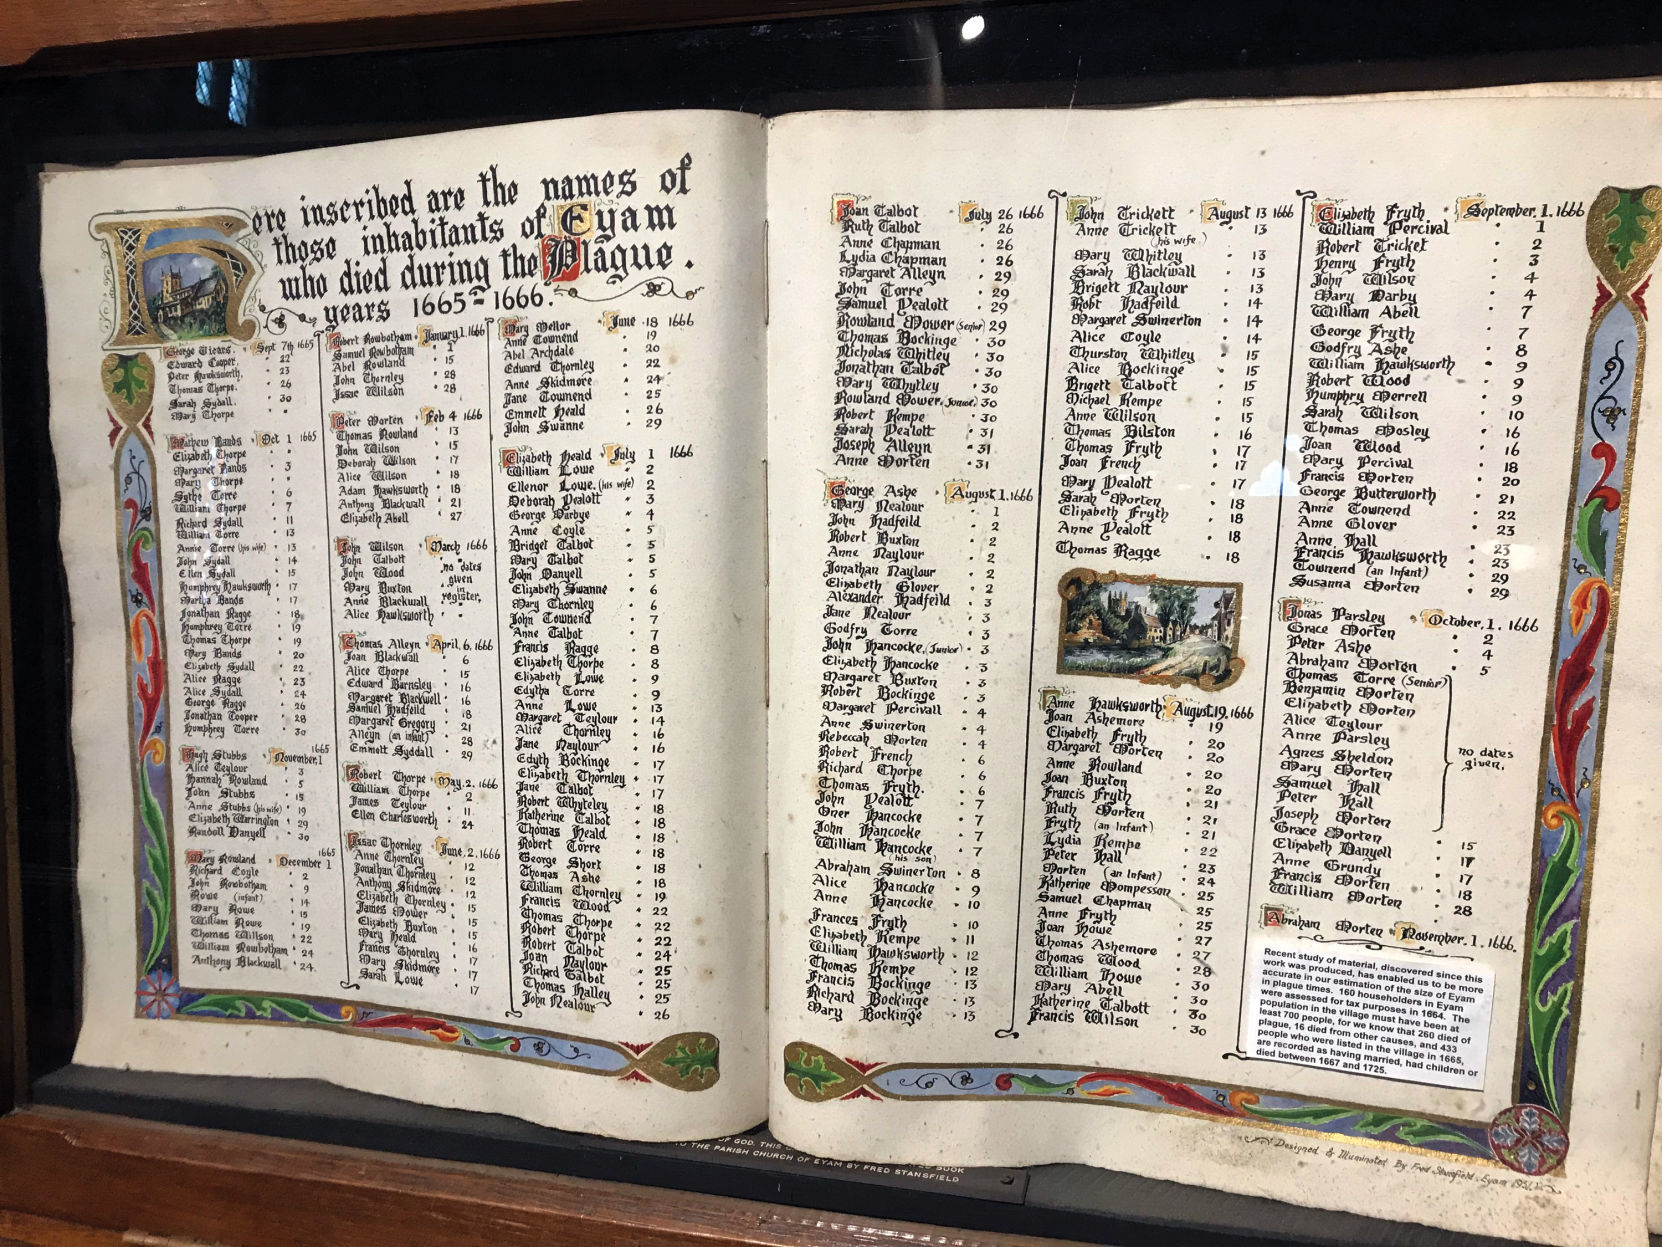 Here inscribed are the names of
those inhabitants of Eyam
who died during the Plague.
years 1665-1666.
George Vicars. Sept 7th 1665
Edward Cooper. 22
Peter Hawksworth. 23
Thomas Thorpe. 26
Sarah Sydall. 30
Mary Thorpe "
Mathew Bands Oct 1 1665
Elizabeth Thorpe "
Margaret Bands 3
Mary Thorpe "
Sythe Torre 6
William Thorpe 7
Richard Sydall 11
William Torre 13
Annie Torre (his wife) 13
John Sydall 14
Ellen Sydall 15
Humphrey Hawksworth 17
Martha Bands 17
Jonathan Ragge 18
Humphrey Torre 19
Thomas Thorpe 19
Mary Bands 20
Elizabeth Sydall 22
Alice Ragge 23
Alice Sydall 24
George Ragge 26
Jonathan Cooper 28
Humphrey Torre 30
1665
Hugh Stubbs November, 1
Alice Teylour 3
Hannah Rowland 5
John Stubbs 15
Anne Stubbs (his wife) 19
Elizabeth Warrington 29
Randoll Danyell 30
1665
Mary Rowland December 1
Richard Coyle 2
John Rowbotham 9
Rowe (infant) 14
Mary Rowe 15
William Rowe 19
Thomas Willson 22
William Rowbotham 24
Anthony Blackwall 24
Robert Rowbotham January 1. 1666
Samuel Rowbotham 1
Abel Rowland 15
John Thornley 28
Issac Wilson 28
Peter Morten Feb 4 1666
Thomas Rowland 13
John Wilson 15
Deborah Wilson 17
Alice Wilson 18
Adam Hawksworth 18
Anthony Blackwall 21
Elizabeth Abell 27
John Wilson March 1666
John Talbott no dates
John Wood given
Mary Buxton in
Anne Blackwall register.
Alice Hawksworth
Thomas Alleyn April, 6, 1666
Joan Blackwall 6
Alice Thorpe 15
Edward Barnsley 16
Margaret Blackwell 16
Samuel Hadfeild 18
Margaret Gregory 21
Alleyn (an infant) 28
Emmett Syddall 29
Robert Thorpe May, 2, 1666
William Thorpe 2
James Teylour 11
Ellen Charlesworth 24
Issac Thornley June, 2, 1666
Anne Thornley 12
Jonathan Thornley 12
Anthony Skidmore 12
Elizabeth Thornley 15
James Mower 15
Elizabeth Buxton 15
Mary Heald 16
Francis Thornley 17
Mary Skidmore 17
Sarah Lowe 17
Mary Mellor June 18 1666
Anne Townend 19
Abel Archdale 20
Edward Thornley 22
Anne Skidmore 24
Jane Townend 25
Emmett Heald 26
John Swanne 29
Elizabeth Heald July 1 1666
William Lowe 2
Ellenor Lowe. (his wife) 2
Deborah Pealott 3
George Darbye 4
Anne Coyle 5
Bridget Talbot 5
Mary Talbot 5
John Danyell 5
Elizabeth Swanne 6
Mary Thornley 6
John Townend 7
Anne Talbot 7
Francis Ragge 8
Elizabeth Thorpe 8
Elizabeth Lowe 9
Edytha Torre 9
Anne Lowe 13
Margaret Teylour 14
Alice Thornley 16
Jane Naylour 16
Edyth Bockinge 17
Elizabeth Thornley 17
Jane Talbot 17
Robert Whyteley 18
Katherine Talbot 18
Thomas Heald 18
Robert Torre 18
George Short 18
Thomas Ashe 18
William Thornley 19
Francis Wood 22
Thomas Thorpe 22
Robert Thorpe 22
Robert Talbot 24
Joan Naylour 25
Richard Talbot 25
Thomas Halley 25
John Nealour 26
Joan Talbot July 26 1666
Ruth Talbot 26
Anne Chapman 26
Lydia Chapman 26
Margaret Alleyn 29
John Torre 29
Samuel Pealott 29
Rowland Mower (Senior) 29
Thomas Bockinge 30
Nicholas Whitley 30
Jonathan Talbot 30
Mary Whytley 30
Rowland Mower (Junior) 30
Robert Kempe 30
Sarah Pealott 31
Joseph Alleyn 31
Anne Morten 31
George Ashe August 1. 1666
Mary Nealour 1
John Hadfeild 2
Robert Buxton 2
Anne Naylour 2
Jonathan Naylour 2
Elizabeth Glover 2
Alexander Hadfeild 3
Jane Nealour 3
Godfry Torre 3
John Hancocke (Junior) 3
Elizabeth Hancocke 3
Margaret Buxton 3
Robert Bockinge 3
Margaret Percivall 4
Anne Swinerton 4
Rebeccah Morten 4
Robert French 6
Richard Thorpe 6
Thomas Fryth. 6
John Pealott 7
Oner Hancocke 7
John Hancocke 7
William Hancocke 7
(his son)
Abraham Swinerton 8
Alice Hancocke 9
Anne Hancocke 10
Frances Fryth 10
Elizabeth Kempe 11
William Hawksworth 12
Thomas Kempe 12
Francis Bockinge 13
Richard Bockinge 13
Mary Bockinge 13
John Trickett August 13 1666
Anne Trickett 13
(his wife)
Mary Whitley 13
Sarah Blackwall 13
Brigett Naylour 13
Robt Hadfeild 14
Margaret Swinerton 14
Alice Coyle 14
Thurston Whitley 15
Alice Bockinge 15
Brigett Talbott 15
Michael Kempe 15
Anne Wlilson 15
Thomas Bilston 16
Thomas Fryth 17
Joan French 17
Mary Pealott 17
Sarah Morten 18
Elizabeth Fryth 18
Anne Pealott 18
Thomas Ragge 18
Anne Hawksworth August, 19, 1666
Joan Ashemore 19
Elizabeth Fryth 20
Margaret Morten 20
Anne Rowland 20
Joan Buxton 20
Francis Fryth 21
Ruth Morten 21
Fryth (an Infant) 21
Lydia Kempe 22
Peter Hall 23
Morten (an Infant) 24
Katherine Mompesson 25
Samuel Chapman 25
Anne Fryth 25
Joan Howe 27
Thomas Ashemore 27
Thomas Wood 28
William Howe 30
Mary Abell 30
Katherine Talbott 30
Francis Wilson 30
Elizabeth Fryth September, 1. 1666
William Percival 1
Robert Tricket 2
Henry Fryth 3
John Wilson 4
Mary Darby 4
William Abell 7
George Fryth 7
Godfry Ashe 8
William Hawksworth 9
Robert Wood 9
Humphry Merrell 9
Sarah Wilson 10
Thomas Mosley 16
Joan Wood 16
Mary Percival 18
Francis Morten 20
George Butterworth 21
Anne Townend 22
Anne Glover 23
Anne Hall 23
Francis Hawksworth 23
Townend (an Infant) 29
Susanna Morten 29
Jonas Parsley October, 1. 1666
Grace Morten 2
Peter Ashe 4
Abraham Morten 5
Thomas Torre (Senior)
Benjamin Morten
Elizabeth Morten
Alice Teylour
Anne Parsley
Agnes Sheldon no dates
Mary Morten given.
Samuel Hall
Peter Hall
Joseph Morten
Grace Morten
Elizabeth Danyell 15
Anne Grundy 17
Francis Morten 17
William Morten 18
28
Abraham Morten November. 1. 1666.
Recent study of material, discovered since this
work was produced, has enabled us to be more
accurate in our estimation of the size of Eyam
in plague times. 160 householders in Eyam
were assessed for tax purposes in 1664. The
population in the village must have been at
least 700 people, for we know that 260 died of
plague, 16 died from other causes, and 433
people who were listed in the village in 1665,
are recorded as having married, had children or
died between 1667 and 1725.
Designed & Illuminated By Fred Stansfield. Eyam
OF GOD. THIS BOOK
TO THE PARISH CHURCH OF EYAM BY FRED STANSFIELD